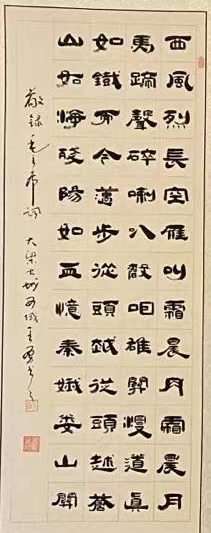 西風烈長空雁叫霜晨月霜晨月
馬蹄聲碎喇叭聲咽雄關漫道真
如鐵而今邁步從頭越從頭越蒼
山如海殘陽如血憶秦娥婁山關
敬錄毛主席詞 大梁